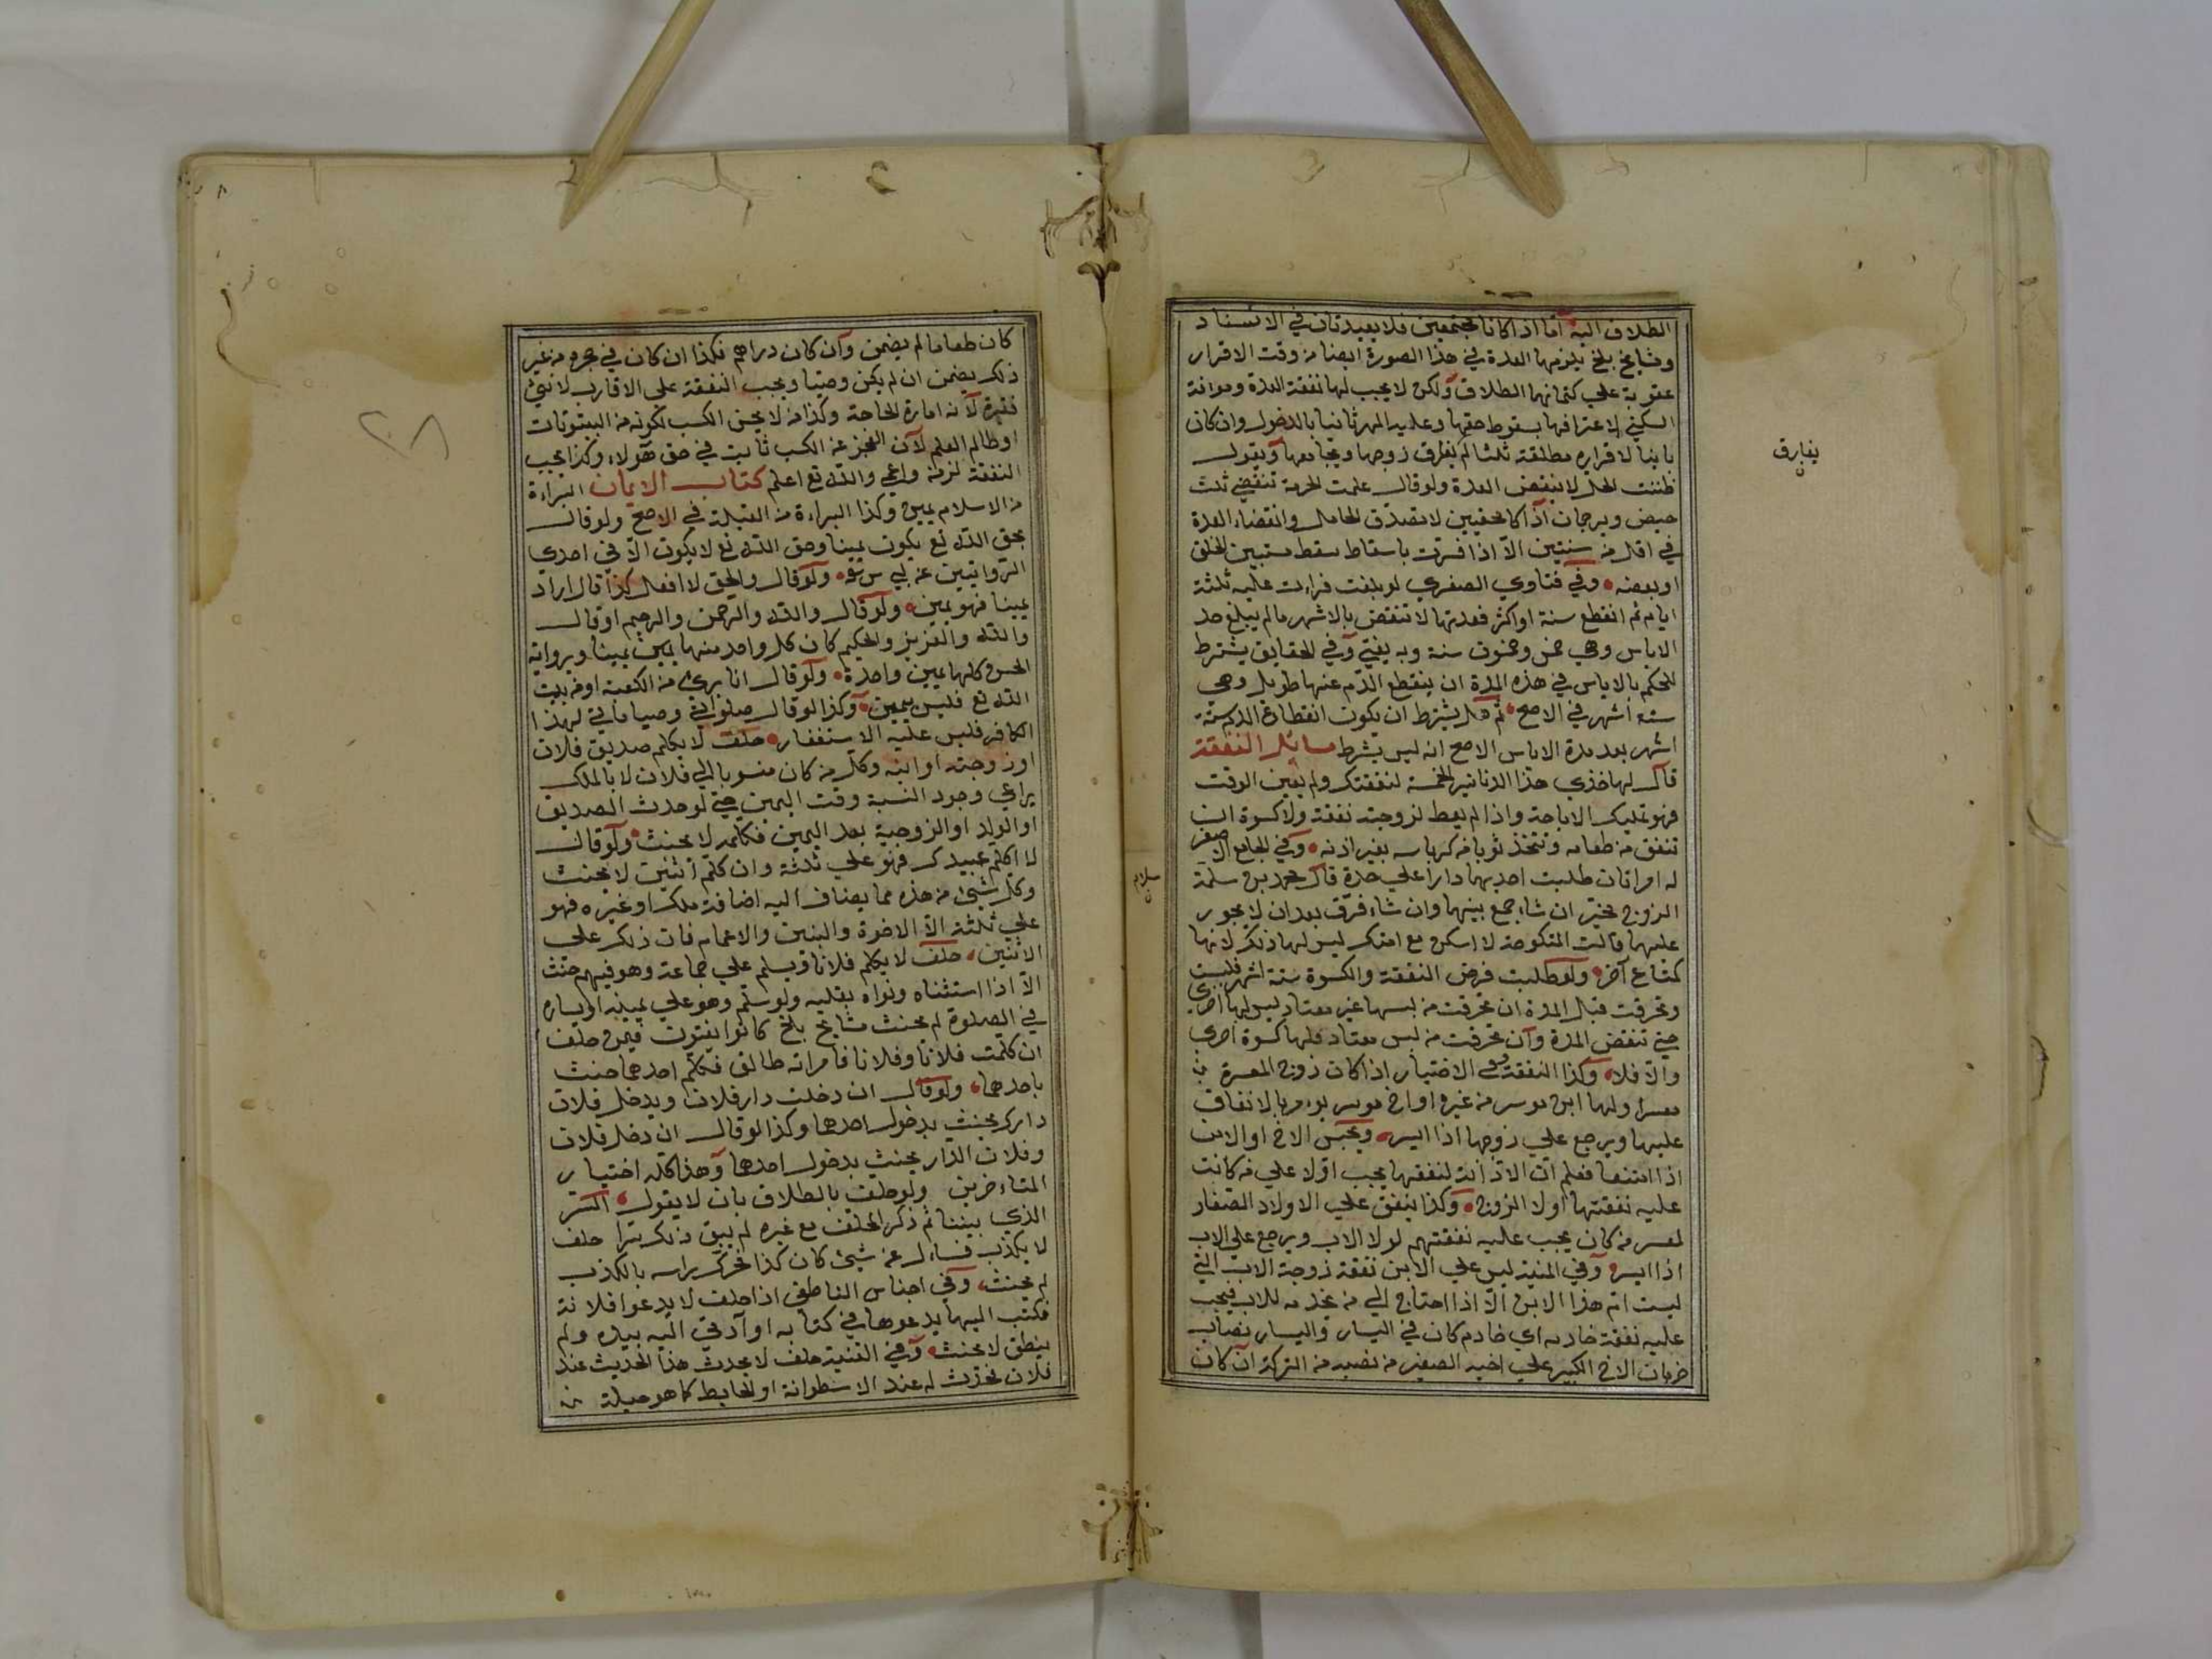 الطلاق اليه اما اذا كانا مجتمعين فلا يصدقان في الاسناد
ومشايخ بلخ يلزمها العدة في هذا الصورة ايضا من وقت الاقرار
عقوبة علي كتمانهما الطلاق ولكن لا يجب لها نفقة العدة ومؤانة
السكني لاعترافها بسقوط حقها وعليه المهر ثانيا بالدخول وان كان
باينا لاقراره مطلقته ثلثا لم يفارق زوجها ويجامعها ويقول
ظننت الحل لا ينقض العدة ولو قال علمت الحرمة تنقضي ثلث
حيض ويرجمان اذا كانا محصنين لا تصدق الحامل وانقضاء العدة
في اقل من سنتين الا اذا فسرت باسقاط سقط مستبين الخلق
او بعضه وفي فتاوي الصغري لو بلغت فرات عليه ثلثة
ايام ثم انقطع سنة او اكثر فعدتها لا تنقض بالاشهر ما لم يبلغ حد
الاياس وهي خمس وخمسون سنة وبه يفتي وفي الحقايق يشترط
للحكم بالاياس في هذه المدة ان ينقطع الدم عنها طويل وهي
ستة اشهر في الاصح ثم هل يشترط ان يكون انقطاع الدم ستة
اشهر بعد مدة الاياس الاصح انه ليس بشرط مسائل النفقة
قال لها خذي هذا الدنانير الخمسة لنفقتك ولم يعين الوقت
فهو تمليك لا اباحة واذا لم يعط لزوجته نفقة ولا كسوة ان
تنفق من طعامه وتتخذ ثوبا من كرباسه بغير اذنه وفي الجامع الاصغر
له امراتان طلبت احديهما دارا علي حدة قال محمد بن سلمة
الزوج مخير ان شاء جمع بينهما وان شاء فرق بعد ان لا يجور
عليهما قالت المنكوحة لا اسكن مع امتك ليس لها ذلك لانها
كمتاع آخر ولو طلبت فرض النفقة والكسوة ستة اشهر فلبست
وتخرقت قبل المدة ان تخرقت من لبسها غير معتاد ليس لها اخري
حتي تنقض المدة وان تخرقت من لبس معتاد فلها كسوة اخري
والا فلا وكذا النفقة وفي الاختيار اذا كان زوج المعسرة
معسرا ولها ابن موسر من غيره او اخ موسر يؤمر بالانفاق
عليها ويرجع علي زوجها اذا ايسر ويحبس الاخ او الابن
اذا امتنعا فعلم ان الادانة لنفقتها يجب اولا علي من كانت
عليه نفقتها لولا الزوج وكذا ينفق علي الاولاد الصغار
لمعسر من كان يجب عليه نفقتهم لولا الاب ويرجع علي الاب
اذا ايسر وفي المنية ليس علي الابن نفقة زوجة الاب التي
ليست ام هذا الابن الا اذا احتاج الي من يخدمه للاب فيجب
عليه نفقة خادمه اي خادم كان في اليسار واليسار نصاب
حرمان الاخ الكبير علي اخيه الصغير من نصيبه من التركة ان كان
يفارق
ن
كان طعاما لم يضمن وان كان دراهم فكذا ان كان في حجره من غير
ذلك يضمن ان لم يكن وصيا ويجب النفقة علي الاقارب لانثي
فقيرة لانه امارة الحاجة وكذا من لا يحسن الكسب لكونه من البيوتات
او طالم العلم لان العجز عن الكسب ثابت في حق هؤلاء وكذا يجب
النفقة لزمن واعمي والله تع اعلم كتاب الايمان البراءة
من الاسلام يمين وكذا البراءة من القبلة في الاصح ولو قال
بحق الله تع يكون يمينا وحق الله تع لا يكون الا في احدي
الروايتين عن ابي س ولو قال والحق لا افعل كذا قال اراد
يمينا فهو يمين ولو قال والله والرحمن والرحيم او قال
والله والعزيز والحكيم كان كل واحد منها يمين يمينا وبرواية
الحسن كلها يمين واحدة ولو قال انا بري من الكعبة او من بيت
الله تع فليس بيمين وكذا لو قال صلواتي وصياماتي لهذا
الكافر فليس عليه الا استغفار حلف لا يكلم صديق فلان
او زوجته او ابنه وكل من كان منسوبا الي فلان لا بالملك
يراعي وجود النسبة وقت اليمين حتي لو حدث الصديق
او الولد او الزوجية بعد اليمين فكلمه لا يحنث ولو قال
لا اكلم عبيدك فهو علي ثلثة وان كلم اثنين لا يحنث
وكل شيئ من هذه مما يضاف اليه اضافة ملك او غيره فهو
علي ثلثة الا الاخوة والبنين والاعمام فان ذلك علي
الاثنين حلف لا يكلم فلانا ويسلم علي جماعة وهو فيهم حنث
الا اذا استثناه ونواه بقلبه ولو سلم وهو علي يمينه او يساره
في الصلوة لم يحنث مشايخ بلخ كانوا يفتون فيمن حلف
ان كلمت فلانا وفلانا فامراته طالق فتكلم احدهما حنث
باحدهما ولو قال ان دخلت دار فلان ويدخل فلان
دارك يحنث بدخول احدهما وكذا لو قال ان دخل فلان
وفلان الدار يحنث بدخول احدهما وهذا كله اختيار
المتاخرين ولو حلف بالطلاق بان لا يقول السر
الذي بيننا ثم ذكر الحلف مع غيره لم يبق ذلك سرا حلف
لا يكذب فسال عن شيئ كان كذا فحرك راسه بالكذب
لم يحنث وفي اجناس الناطفي اذا حلف لا يدعو فلانة
فكتب اليها يدعوها في كتابه او آدني اليه بيده ولم
ينطق لا يحنث وفي القنية حلف لا يحدث هذا الحديث عند
فلان تحدث له عند الاسطوانة او الحايط كما هو حيلة